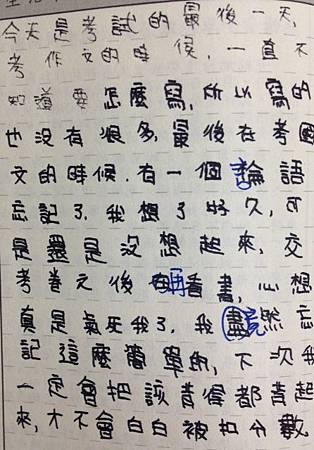 今天是考試的最後一天,
考作文的時候,一直不
知道要怎麼寫,所以寫的
也沒有很多,最後在考國
文的時候,有一個論語
忘記了,我想了好久,可
是還是沒想起來,交
考卷之後再看書,心想
真是氣死我了,我竟然忘
記這麼簡單的,下次我
一定會把該背得都背起
來,才不會白白被扣分數